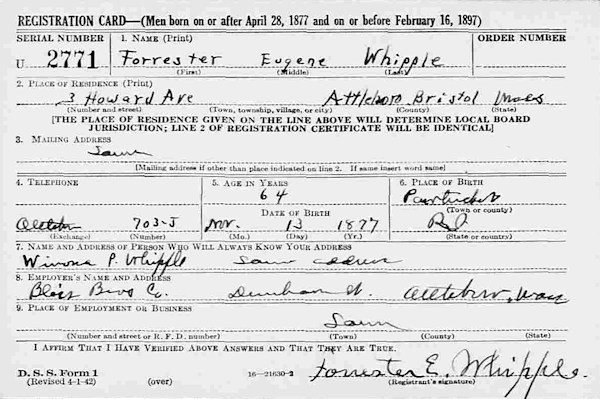 REGISTRATION CARD—(Men born on or after April 28, 1877 and on or before February 16, 1897)
SERIAL NUMBER 1. NAME (Print) ORDER NUMBER
U 2771 Forrester Eugene Whipple
(First) (Middle) (Last)
2. PLACE OF RESIDENCE (Print)
3 Howard Ave Attleboro Bristol Mass
(Number and street) (Town, township, village, or city) (County) (State)
[THE PLACE OF RESIDENCE GIVEN ON THE LINE ABOVE WILL DETERMINE LOCAL BOARD
JURISDICTION; LINE 2 OF REGISTRATION CERTIFICATE WILL BE IDENTICAL]
3. MAILING ADDRESS
Same
[Mailing address if other than place indicated on line 2. If same insert word same]
4. TELEPHONE 5. AGE IN YEARS 6. PLACE OF BIRTH
64 Pawtucket
DATE OF BIRTH (Town or county)
Attleboro 703-J Nov. 13 1877 R.I.
(Exchange) (Number) (Mo.) (Day) (Yr.) (State or country)
7. NAME AND ADDRESS OF PERSON WHO WILL ALWAYS KNOW YOUR ADDRESS
Winona P. Whipple Same address
8. EMPLOYER'S NAME AND ADDRESS
Bliss Bros Co. Dunham St. Attleboro, Mass
9. PLACE OF EMPLOYMENT OR BUSINESS
Same
(Number and street or R. F. D. number) (Town) (County) (State)
I AFFIRM THAT I HAVE VERIFIED ABOVE ANSWERS AND THAT THEY ARE TRUE.
D. S. S. Form 1
(Revised 4-1-42) (over) 16—21630-2 Forrester E. Whipple.
(Registrant's signature)